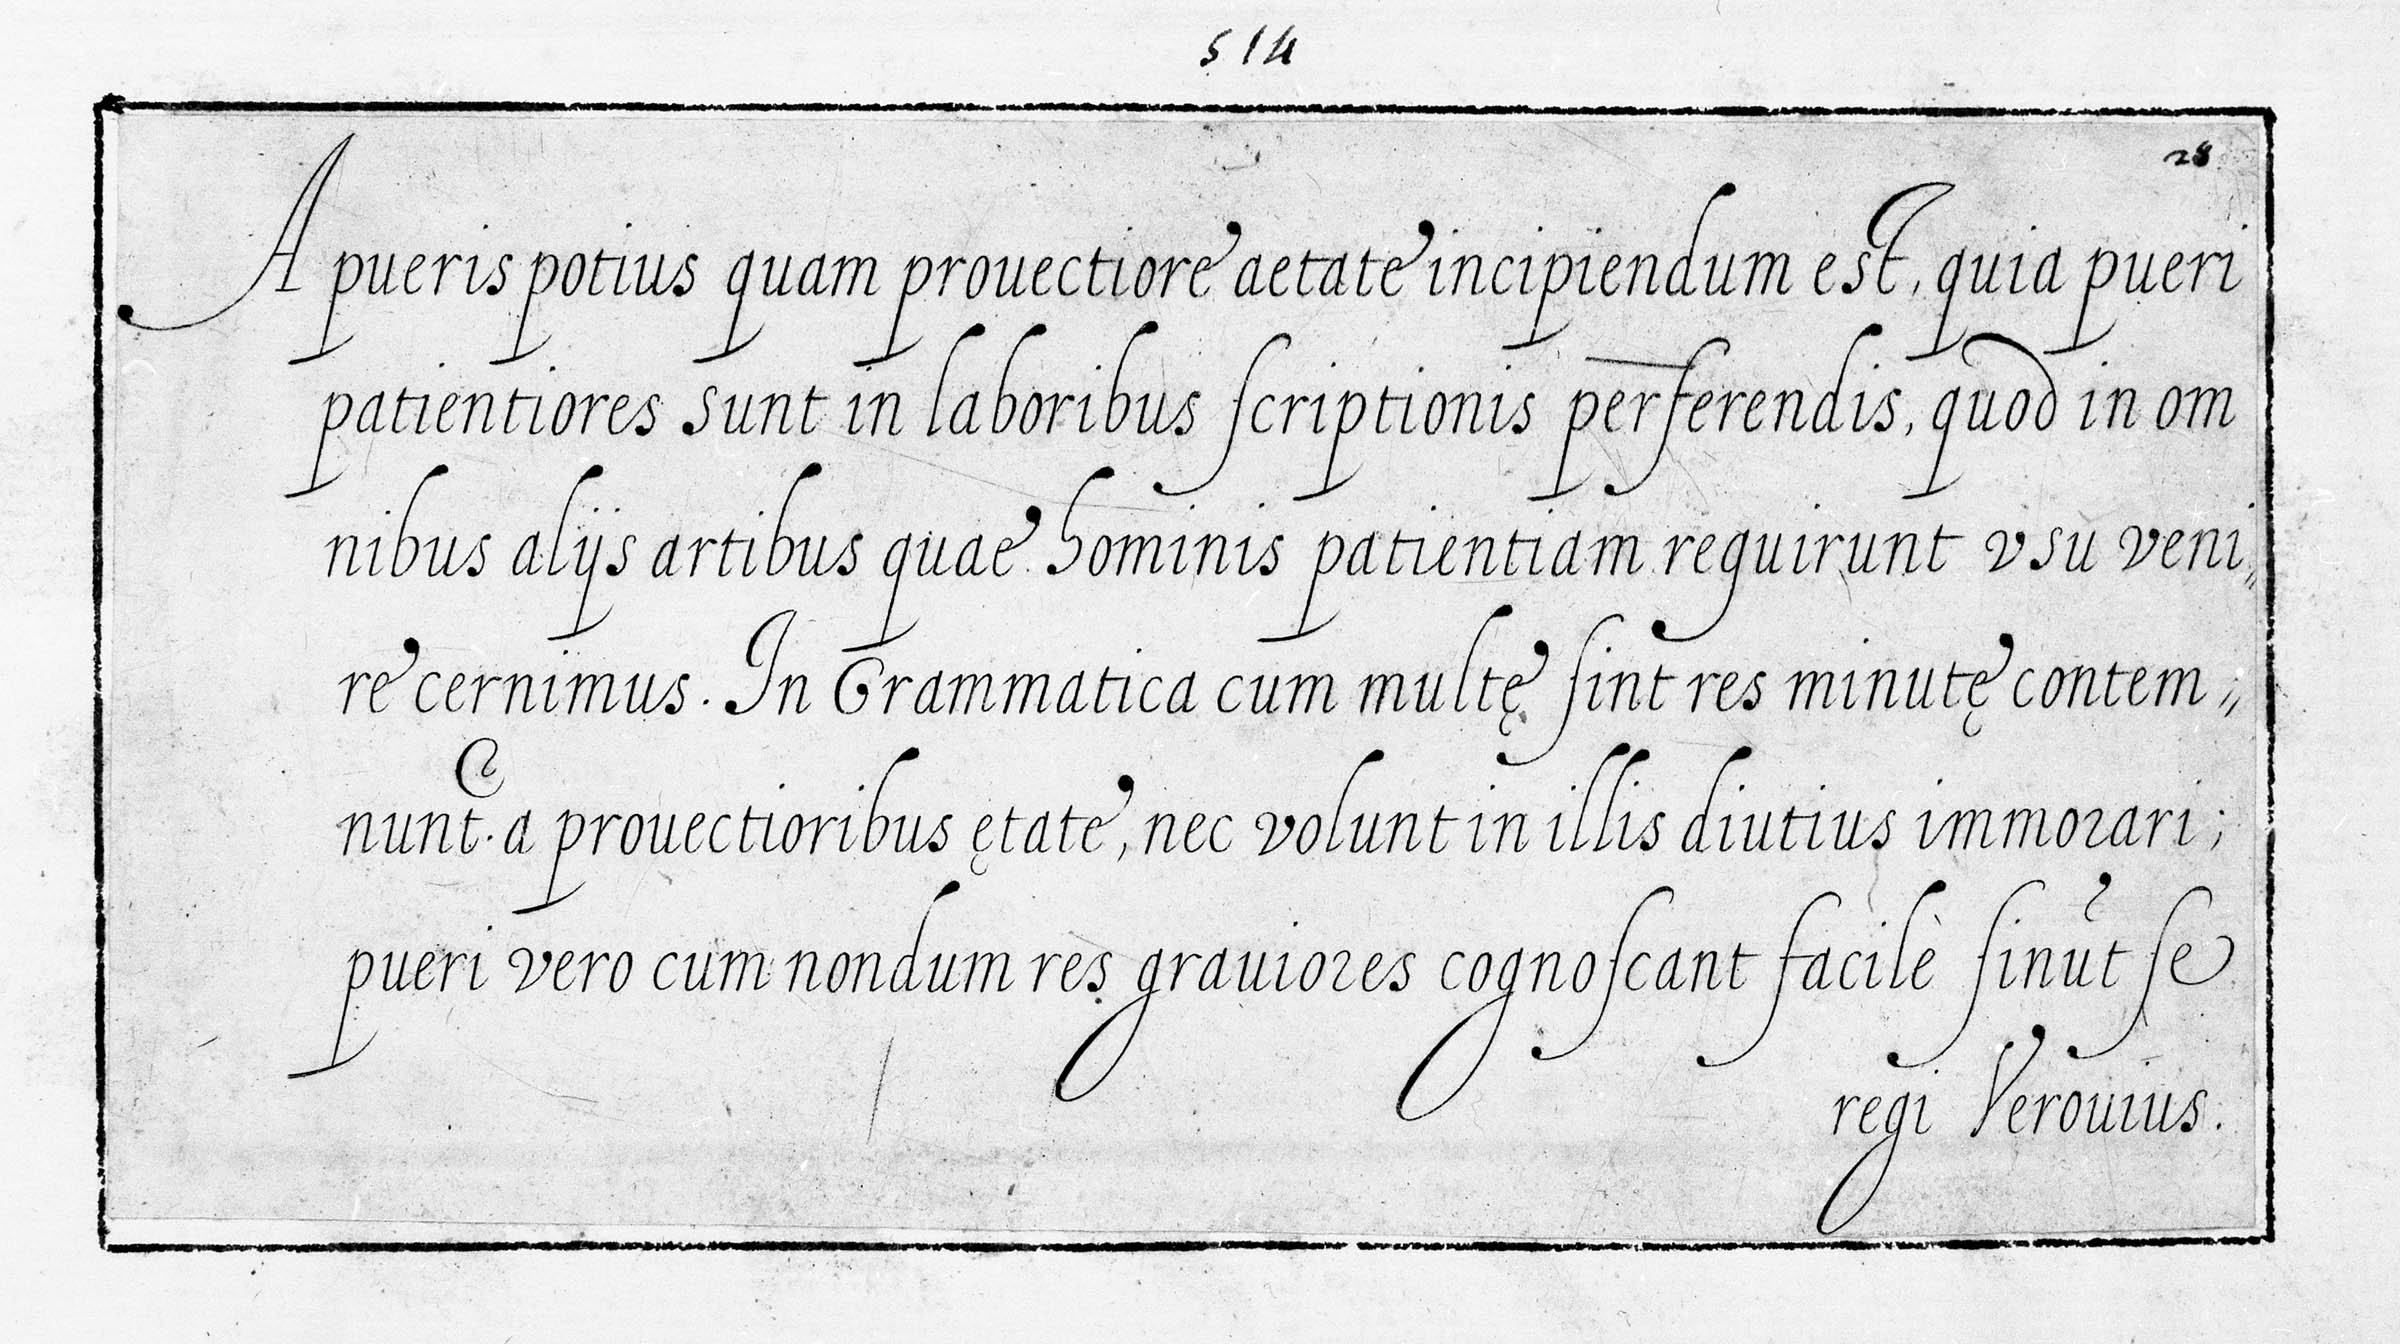 514
28
A pueris potius quam prouectiore aetate incipiendum est, quia pueri
patientiores sunt in laboribus ſcriptionis perferendis, quod in om
nibus alijs artibus quae hominis patientiam requirunt vsu veni〃
re cernimus. In Grammatica cum multę ſint res minutę contem〃
nunt. a prouectioribus ętate, nec volunt in illis diutius immorari;
pueri vero cum nondum res grauiores cognoſcant facilè ſinūt ſe
regi Verouius.